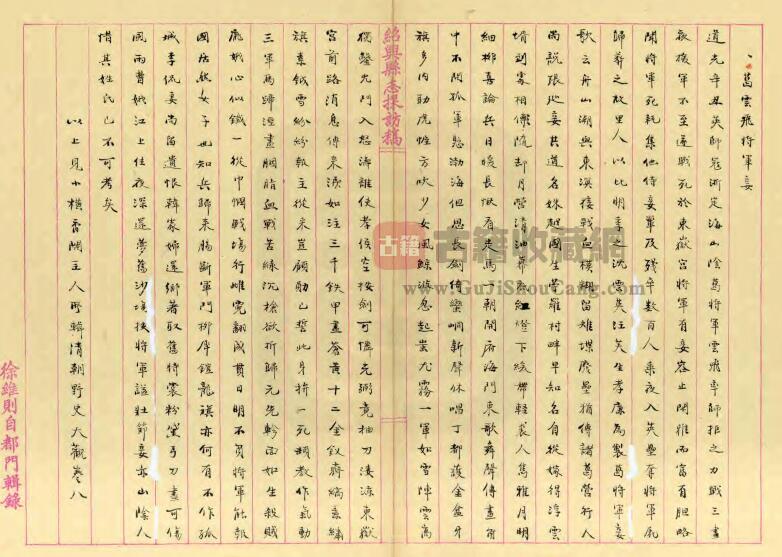 、葛雲飛將軍妾
道光辛丑英師寇浙定海山陰葛將軍雲飛專師拒之力戰三晝
夜援軍不至遂戰死於東嶽宮將軍有妾容止閑雅而富有胆略
聞將軍死耗集他侍妾輩及殘卒數百人乘夜入英壘奪將軍屍
歸葬之故里人以比明季之沈雲英汪芙生孝廉為製葛將軍妾
歌云舟山潮與東溟接戰血模糊留雉堞廢壘猶傳諸葛營行人
尚說張妃妾共道名姝越國生苧羅村畔早知名自從嫁得浮雲
壻到處相隨却月營清油幕底紅燈下緩帶輕裘人雋雅月明
細柳喜論兵日媛長楸看走馬一朝開府海門東歌舞聲傳畫角
中不問孤軍懸渤海但思長劍倚崆峒新聲休唱丁都護金盆牙
旗多內助虎帷方吹少女風鯨波忽起蚩尤霧一軍如雪陣雲高
紹興縣志採訪稿
獨鑿凶門入怒濤誰使孝侯空按劍可憐光弼竟抽刀淒涼東嶽
宮前路消息傳來淚如注三千鉄甲盡蒼黃十二金釵齊縞素繡
旗素鉞雪紛紛報主從來豈顧勛已誓此身拚一死頓教作氣動
三軍馬蹄溼盡胭脂血戰苦綠沉槍欲折歸元先軫面如生殺賊
龐娥心似鐵一從巾幗戰場行雌霓翻成貫日明不負將軍能報
國居然女子也知兵歸來腸斷軍門柳犀鎧龍旗亦何有不作孤
城李侃妾尚留遺恨韓家婦還鄉著取舊時裳粉黛弓刀盡可傷
風雨曹娥江上住夜深還夢舊沙塲扶將軍諡壯節妾亦山陰人
惜其姓氏已不可考矣
以上見小橫香閣主人所輯清朝野史大觀卷八
徐維則自都門輯錄
古籍
古籍收藏網
www.GuJiShouCang.com